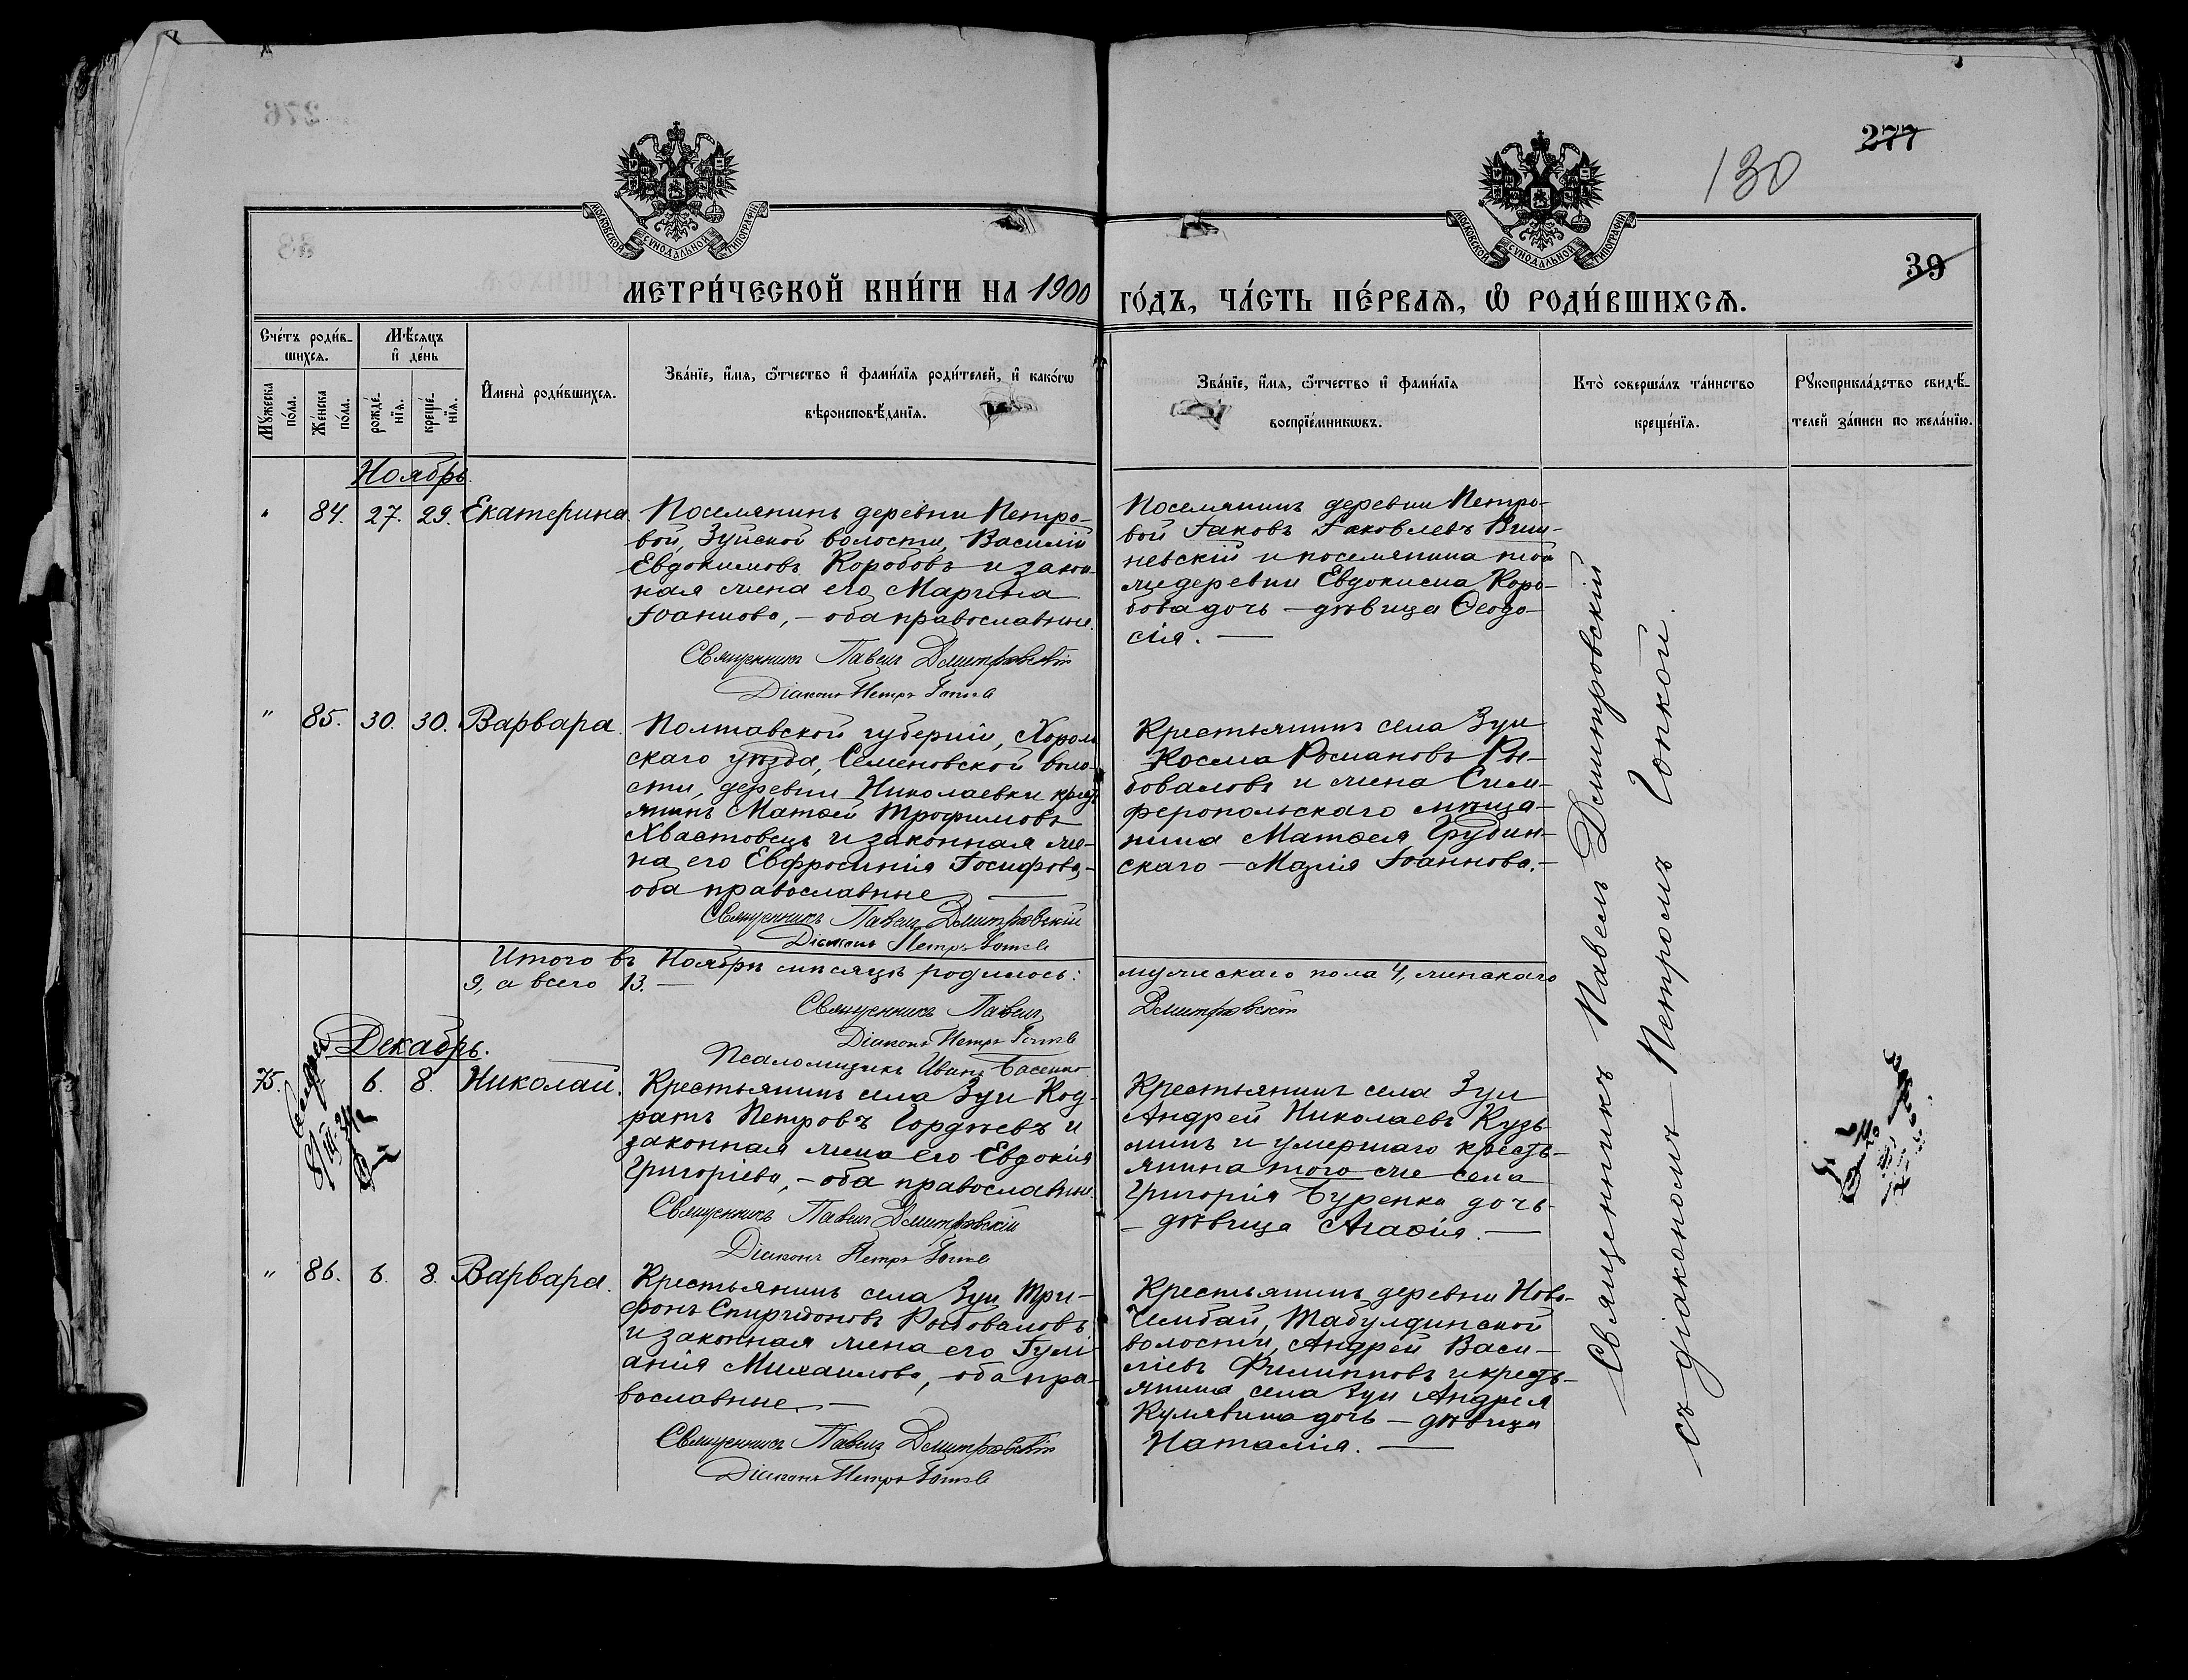 277
130
39
МОСКОВСКОЙ СѴНОДАЛЬНОЙ ТИПОГРАФІИ
МОСКОВСКОЙ СѴНОДАЛЬНОЙ ТИПОГРАФІИ
МЕТРИ́ЧЕСКОЙ КНИ́ГИ НА 1900
ГО́ДЪ, ЧА́СТЬ ПЕ́РВАѦ, Ѽ РОДИ́ВШИХСѦ.
Сче́тъ роди́в-
шихсѧ.
Мѣ́сяцъ
и҆ де́нь
Мꙋжеска
по́ла.
Же́нска
по́ла.
рожде́-
нїѧ.
креще́-
нїѧ.
И҆мена̀ роди́вшихсѧ.
Зва́нїе, и҆́мѧ, ѻ҆́тчество и҆ фами́лїѧ роди́телей, и҆ како́гѡ
вѣроисповѣ́данїѧ.
Зва́нїе, и҆́мѧ, ѻ҆́тчество и҆ фами́лїѧ
воспрїе́мникѡвъ.
Кто̀ соверша́лъ та́инство
креще́нїѧ.
Рꙋкоприкла́дство свидѣ́-
телей за́писи по жела́нїю.
Ноябрь.
" 84. 27. 29. Екатерина.
Поселянинъ деревни Петро-
вой, Зуйской волости, Василій
Евдокимовъ Коробовъ и закон-
ная жена его Марина
Іоаннова, – оба православные.
Священникъ Павелъ Дмитровскій
Діаконъ Петръ
Поселянинъ деревни Петро-
вой Іаковъ Іаковлевъ Виш-
невскій и поселянина той
же деревни Евдокима Коро-
бова дочь – дѣвица Ѳеодо-
сія. —
" 85. 30. 30. Варвара.
Полтавской губерніи, Хороль
скаго уѣзда, Семеновской воло-
сти, деревни Николаевки крест
янинъ Матѳей Трофимовъ
Хвастовецъ и законная же-
на его Евфросинія Іосифова, –
оба православные. —
Священникъ Павелъ Дмитровскій
Діаконъ Петръ
Крестьянинъ села Зуи
Косма Романовъ Ры-
боваловъ и жена Сим-
феропольскаго мѣща-
нина Матѳея Грудин-
скаго – Марія Іоаннова. –
Итого въ Ноябрѣ мѣсяцѣ родилось: мужескаго пола 4, женскаго
9, а всего 13. —
Священникъ Павелъ Дмитровскій
Діаконъ Петръ
Псаломщикъ Иванъ Басенко
Декабрь.
75. 6. 8. Николай.
Крестьянинъ села Зуи Код-
ратъ Петровъ Гордѣевъ и
законная жена его Евдокія
Григоріева, – оба православные.
Священникъ Павелъ Дмитровскій
Діаконъ Петръ
Крестьянинъ села Зуи
Андрей Николаевъ Кузь-
минъ и умершаго кресть-
янина того же села
Григорія Буренка дочь
– дѣвица Агаѳія. —
" 86. 6. 8. Варвара.
Крестьянинъ села Зуи Три-
фонъ Спиридоновъ Рыбоваловъ
и законная жена его Іулі-
анія Михаилова, – оба пра-
вославные. —
Священникъ Павелъ Дмитровскій
Діаконъ Петръ
Крестьянинъ деревни Ново-
Чембай, Табулдинской
волости, Андрей Васи-
ліевъ Филипповъ и кресть-
янина села Зуи Андрея
Кулявина дочь – дѣвица
Наталія. —
Священникъ Павелъ Дмитровскій
съ діакономъ Петромъ Гопкой.